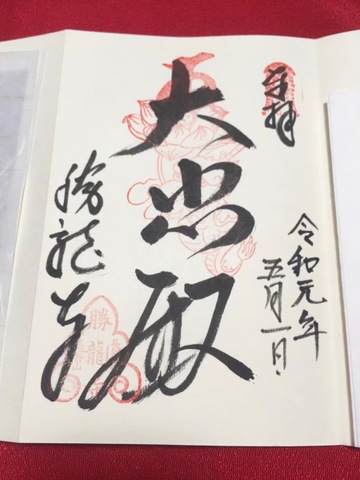 奉拝
令和元年
五月一日
大悲殿
勝龍寺
勝龍